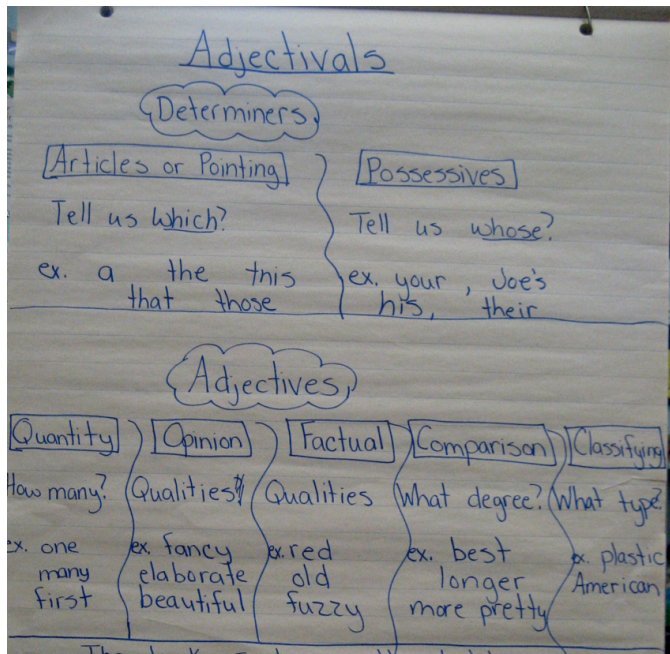 Adjectivals
Determiners
Articles or Pointing
Tell us which?
ex. a the this
that those
Possessives
Tell us whose?
ex. your, Joe's
his, their
Adjectives
Quantity
How many?
ex. one
many
first
Opinion
Qualities
ex. fancy
elaborate
beautiful
Factual
Qualities
ex. red
old
fuzzy
Comparison
What degree?
ex. best
longer
more pretty
Classifying
What type?
ex. plastic
American